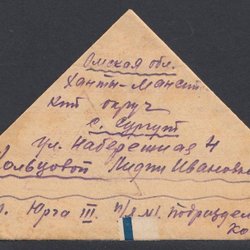 Омская обл.
Ханты-Мансит
кий округ
с. Сургут
ул. Набережная 4
ольцовой Лидии Ивановн
Юрга III. п/я №1. подразде